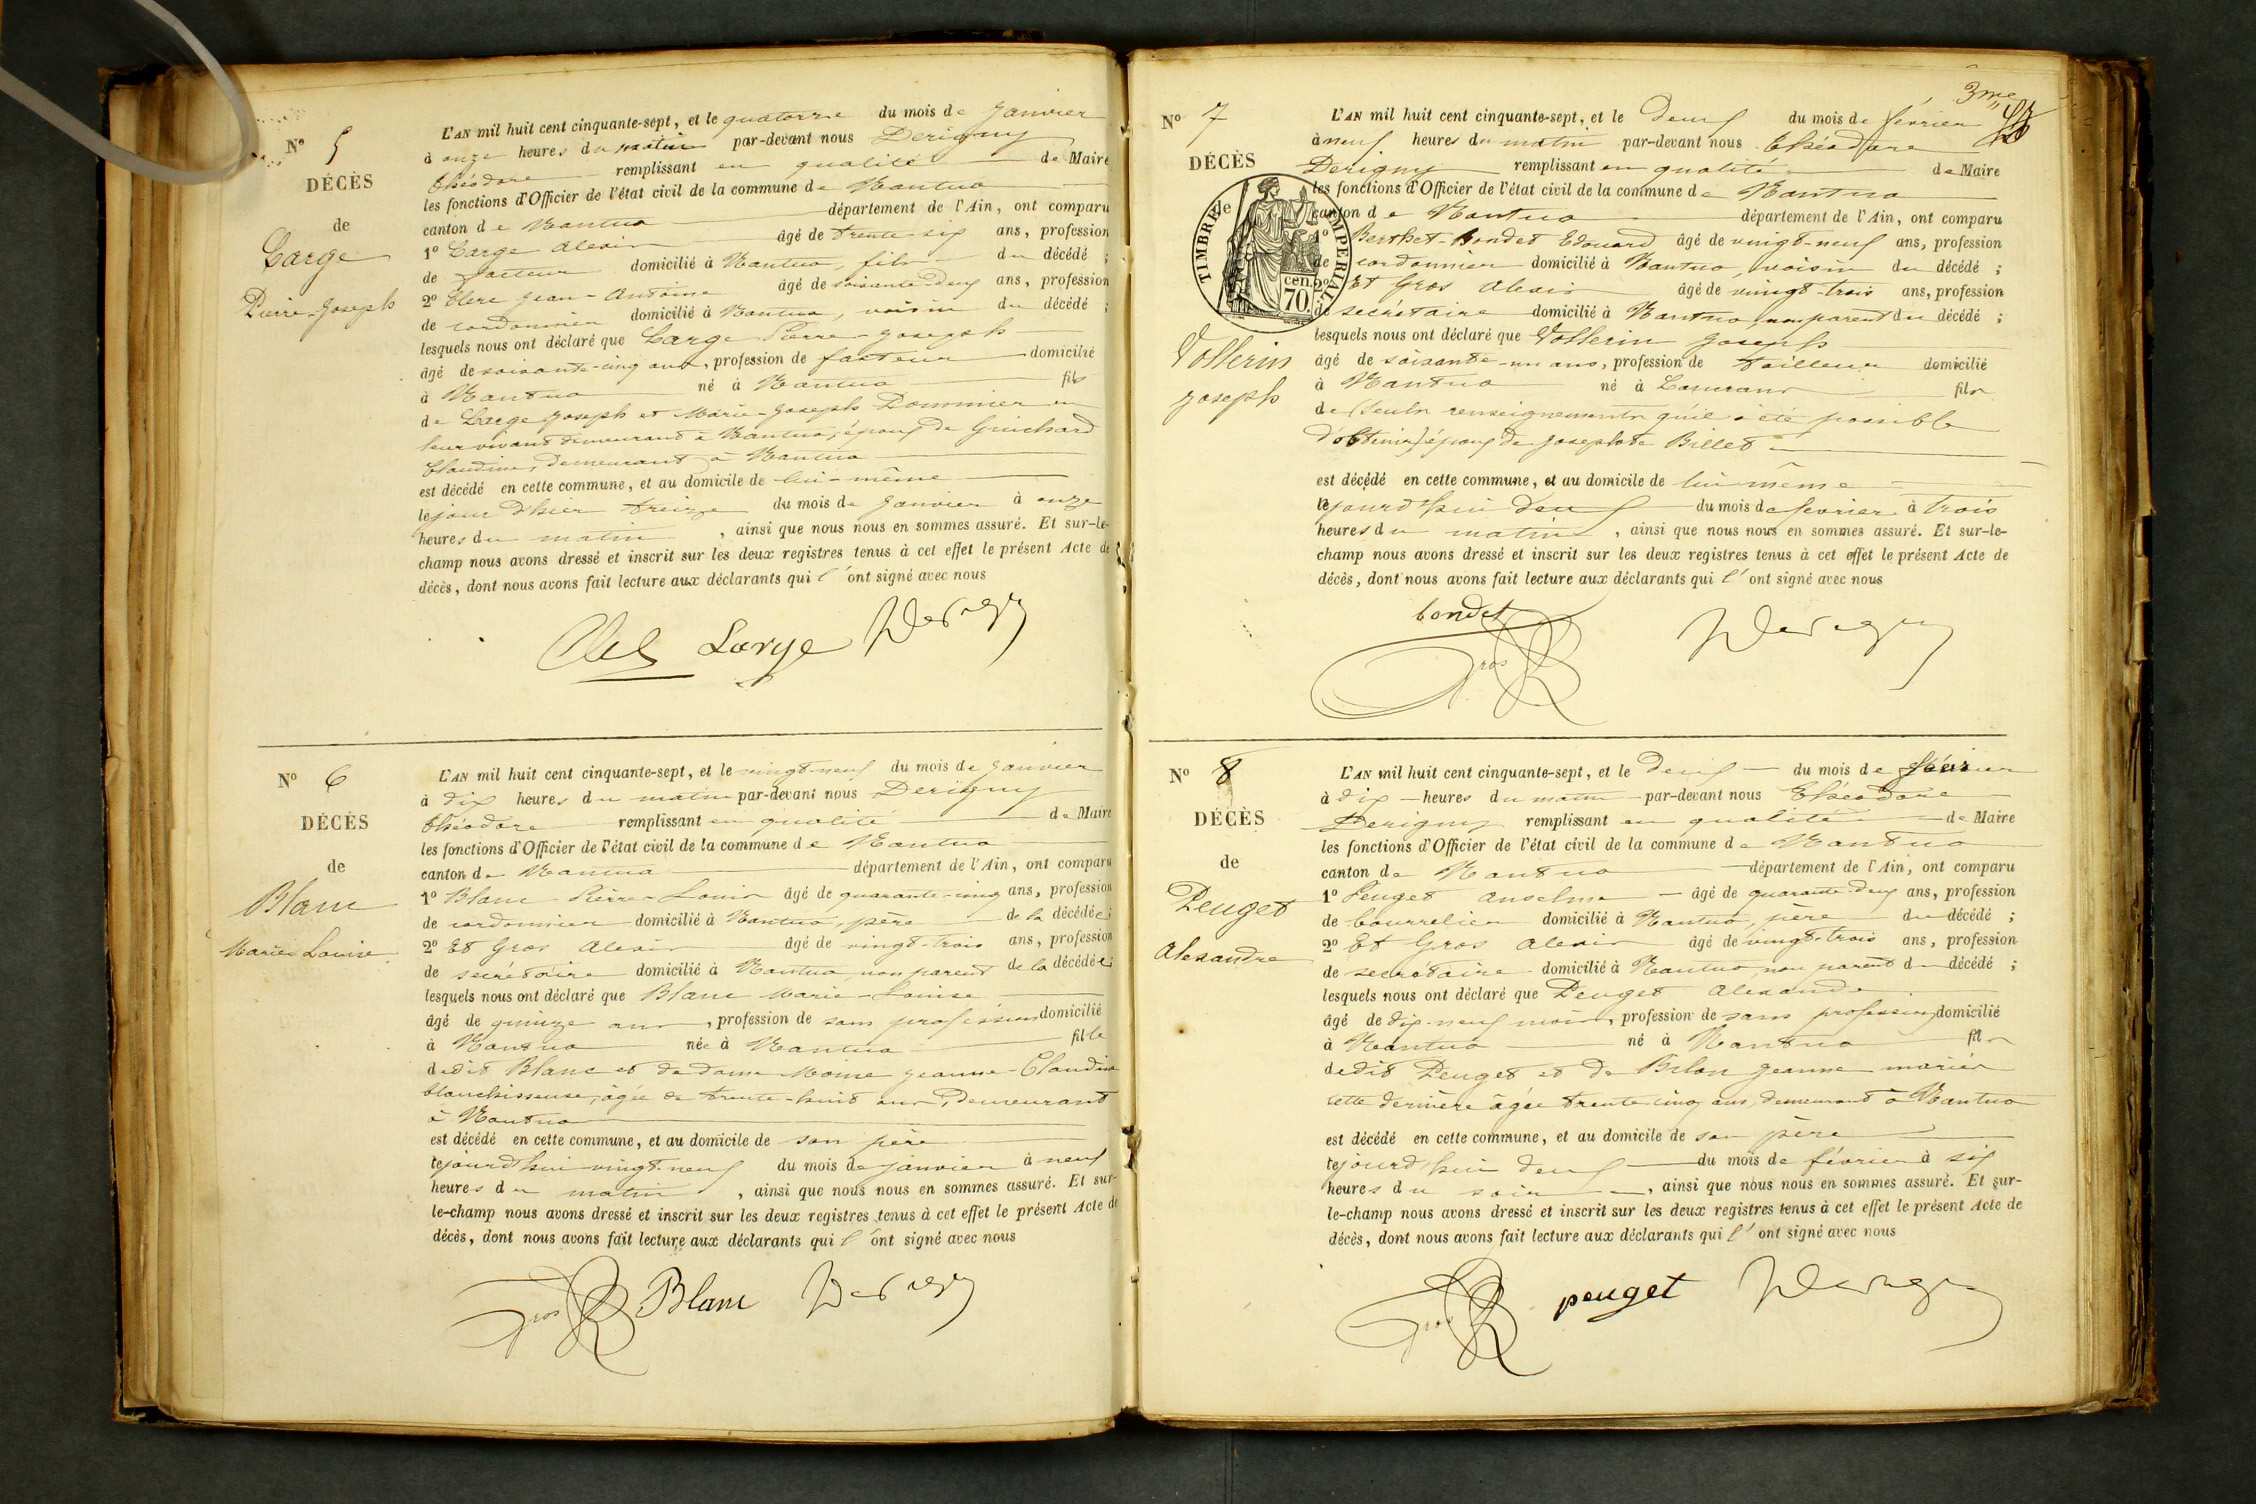 N° 5
DÉCÈS
de
Large
Pierre-Joseph
L'AN mil huit cent cinquante-sept, et le quatorze du mois de Janvier
à onze heures du matin par-devant nous Derigny
théodore remplissant en qualité de Maire
les fonctions d'Officier de l'état civil de la commune de Nantua
canton de Nantua département de l'Ain, ont comparu
1° Large Alexis âgé de trente-six ans, profession
de facteur domicilié à Nantua, fils du décédé ;
2° Clerc Jean-Antoine âgé de soixante-deux ans, profession
de cordonnier domicilié à Nantua, voisin du décédé ;
lesquels nous ont déclaré que Large Pierre-Joseph
âgé de soixante-cinq ans, profession de facteur domicilié
à Nantua né à Nantua fils
de Large Joseph et Marie-Joseph Pommier en
leur vivant demeurant à Nantua, époux de Guichard
Claudine, demeurant à Nantua
est décédé en cette commune, et au domicile de lui-même
le jour d'hier treize du mois de Janvier à onze
heures du matin, ainsi que nous nous en sommes assuré. Et sur-le-
champ nous avons dressé et inscrit sur les deux registres tenus à cet effet le présent Acte de
décès, dont nous avons fait lecture aux déclarants qui l'ont signé avec nous
Large Derigny
N° 6
DÉCÈS
de
Blanc
Marie-Louise
L'AN mil huit cent cinquante-sept, et le vingt-neuf du mois de Janvier
à dix heures du matin par-devant nous Derigny
théodore remplissant en qualité de Maire
les fonctions d'Officier de l'état civil de la commune de Nantua
canton de Nantua département de l'Ain, ont comparu
1° Blanc Pierre-Louis âgé de quarante-cinq ans, profession
de cordonnier domicilié à Nantua, père de la décédée ;
2° Et Gros Alexis âgé de vingt-trois ans, profession
de secrétaire domicilié à Nantua, non parent de la décédée ;
lesquels nous ont déclaré que Blanc Marie-Louise
âgé de quinze ans, profession de sans profession domicilié
à Nantua née à Nantua fille
dedit Blanc et de dame Moine Jeanne-Claudine
blanchisseuse, âgée de trente-huit ans, demeurant
à Nantua
est décédé en cette commune, et au domicile de son père
le jourd'hui vingt-neuf du mois de janvier à neuf
heures du matin, ainsi que nous nous en sommes assuré. Et sur-
le-champ nous avons dressé et inscrit sur les deux registres tenus à cet effet le présent Acte de
décès, dont nous avons fait lecture aux déclarants qui l'ont signé avec nous
Gros Blanc Derigny
3me
N° 7
DÉCÈS
de
TIMBRE IMPERIAL
70 cen.
Vollerin
Joseph
L'AN mil huit cent cinquante-sept, et le Deux du mois de février
à neuf heures du matin par-devant nous Théodore
Derigny remplissant en qualité de Maire
les fonctions d'Officier de l'état civil de la commune de Nantua
canton de Nantua département de l'Ain, ont comparu
1° Berthet-Bondet Edouard âgé de vingt-neuf ans, profession
de cordonnier domicilié à Nantua, voisin du décédé ;
2° Et Gros Alexis âgé de vingt-trois ans, profession
de secrétaire domicilié à Nantua, non parent du décédé ;
lesquels nous ont déclaré que Vollerin Joseph
âgé de soixante-un ans, profession de tailleur domicilié
à Nantua né à fils
de (seuls renseignements qu'il a été possible
d'obtenir) époux de Josephte Billet
est décédé en cette commune, et au domicile de lui-même
le jourd'hui deux du mois de février à trois
heures du matin, ainsi que nous nous en sommes assuré. Et sur-le-
champ nous avons dressé et inscrit sur les deux registres tenus à cet effet le présent Acte de
décès, dont nous avons fait lecture aux déclarants qui l'ont signé avec nous
bondet
Gros Derigny
N° 8
DÉCÈS
de
Peuget
Alexandre
L'AN mil huit cent cinquante-sept, et le Deux du mois de février
à dix heures du matin par-devant nous Théodore
Derigny remplissant en qualité de Maire
les fonctions d'Officier de l'état civil de la commune de Nantua
canton de Nantua département de l'Ain, ont comparu
1° Peuget Anselme âgé de quarante-deux ans, profession
de bourrelier domicilié à Nantua, père du décédé ;
2° Et Gros Alexis âgé de vingt-trois ans, profession
de secrétaire domicilié à Nantua, non parent d décédé ;
lesquels nous ont déclaré que Peuget Alexandre
âgé de dix-neuf mois, profession de sans profession domicilié
à Nantua né à Nantua fils
dedit Peuget et de Jeanne mariés
cette dernière âgée trente-cinq ans, demeurant à Nantua
est décédé en cette commune, et au domicile de son père
le jourd'hui deux du mois de février à six
heures du soir, ainsi que nous nous en sommes assuré. Et sur-
le-champ nous avons dressé et inscrit sur les deux registres tenus à cet effet le présent Acte de
décès, dont nous avons fait lecture aux déclarants qui l'ont signé avec nous
Gros peuget Derigny